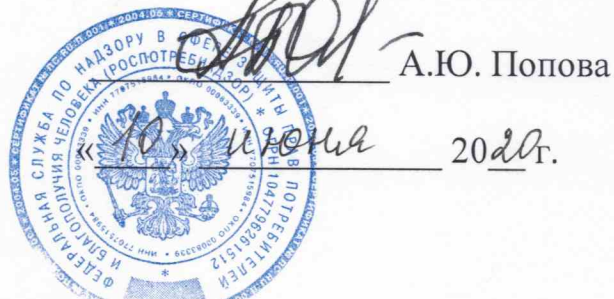 А.Ю. Попова
«10» июня 2020г.
ФЕДЕРАЛЬНАЯ СЛУЖБА ПО НАДЗОРУ В СФЕРЕ ЗАЩИТЫ ПРАВ ПОТРЕБИТЕЛЕЙ
И БЛАГОПОЛУЧИЯ ЧЕЛОВЕКА (РОСПОТРЕБНАДЗОР) * ОГРН 1047796261512
* ИНН 7707515984 * ОКПО 00083339